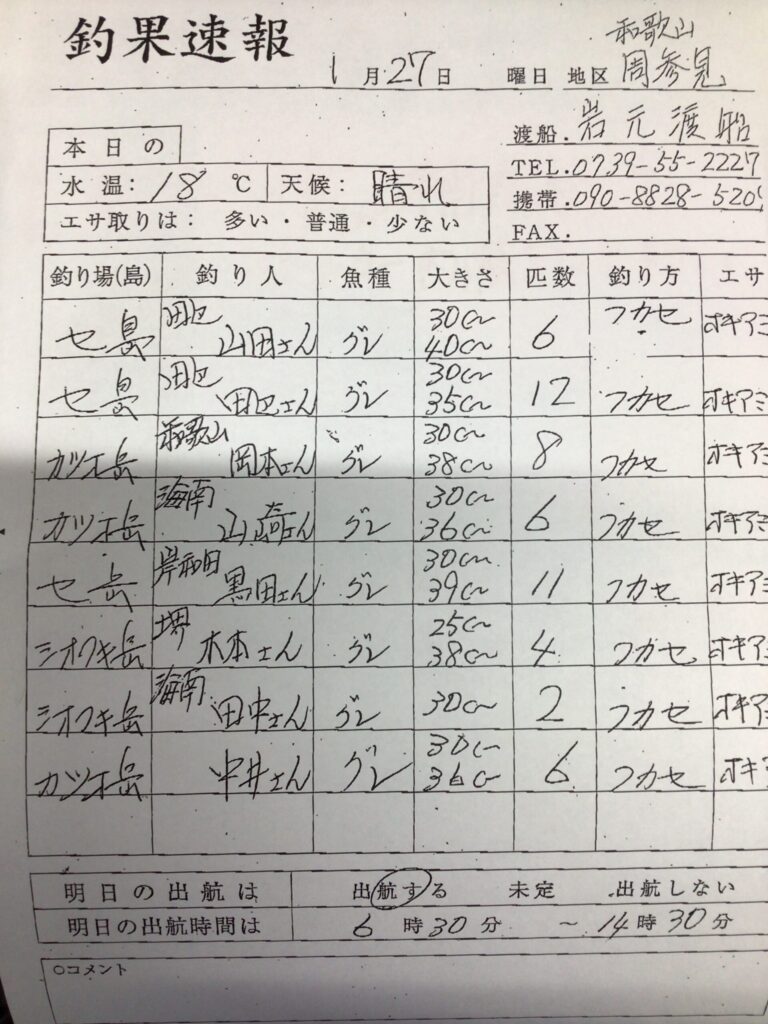 釣果速報
1月27日 曜日 地区 和歌山 周参見
渡船. 岩元渡船
TEL.0739-55-2227
携帯.090-8828-520
FAX.
本日の
水温: 18 ℃ 天候: 晴れ
エサ取りは: 多い・普通・少ない
釣り場(島) 釣り人 魚種 大きさ 匹数 釣り方 エサ
セ島 田辺 山田さん グレ 30㎝ 40㎝ 6 フカセ オキアミ
セ島 田辺 田辺さん グレ 30㎝ 35㎝ 12 フカセ オキアミ
カツオ岳 和歌山 岡本さん グレ 30㎝ 38㎝ 8 フカセ オキアミ
カツオ岳 海南 山崎さん グレ 30㎝ 36㎝ 6 フカセ オキアミ
セ岳 岸和田 黒田さん グレ 30㎝ 39㎝ 11 フカセ オキア
シオフキ岳 堺 木本さん グレ 25㎝ 38㎝ 4 フカセ オキア
シオフキ岳 海南 田中さん グレ 30㎝ 2 フカセ オキア
カツオ岳 中井さん グレ 30㎝ 36㎝ 6 フカセ オキア
明日の出航は 出航する 未定 出航しない
明日の出航時間は 6時30分 ～14時30分
○コメント